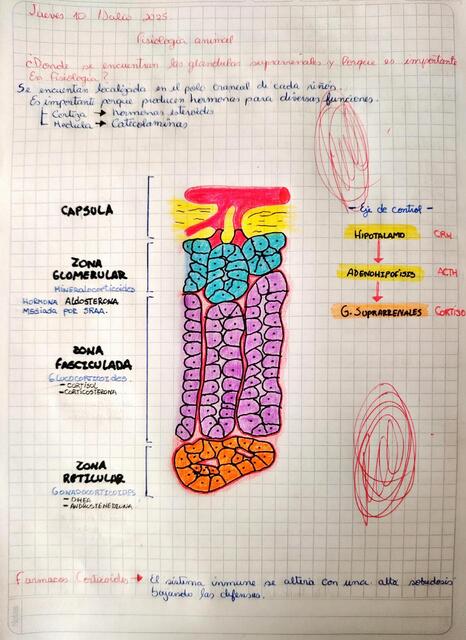 Jueves 10 Julio 2025.
Fisiología animal
¿Donde se encuentran las glandulas suprarrenales y Porque es importante
En Fisiología?
Se encuentran localizada en el polo craneal de cada riñon.
Es importante porque producen hormonas para diversas funciones.
Corteza → hormonas esteroides
Medula → Catecolaminas
CAPSULA
ZONA
GLOMERULAR
MINERALOCORTICOIDES
HORMONA ALDOSTERONA
MEDIADA POR SRAA.
ZONA
FASCICULADA
GLUCOCORTICOIDES
- CORTISOL
- CORTICOSTERONA
ZONA
RETICULAR
GONADOCORTICOIDES
- DHEA
- ANDROSTENEDIONA
- Eje de control -
HIPOTALAMO CRH
ADENOHIPOFISIS ACTH
G. SUPRARRENALES CORTISO
Farmacos Corticoides → El sistema inmune se altera con una alta sobredosis
bajando las defensas.